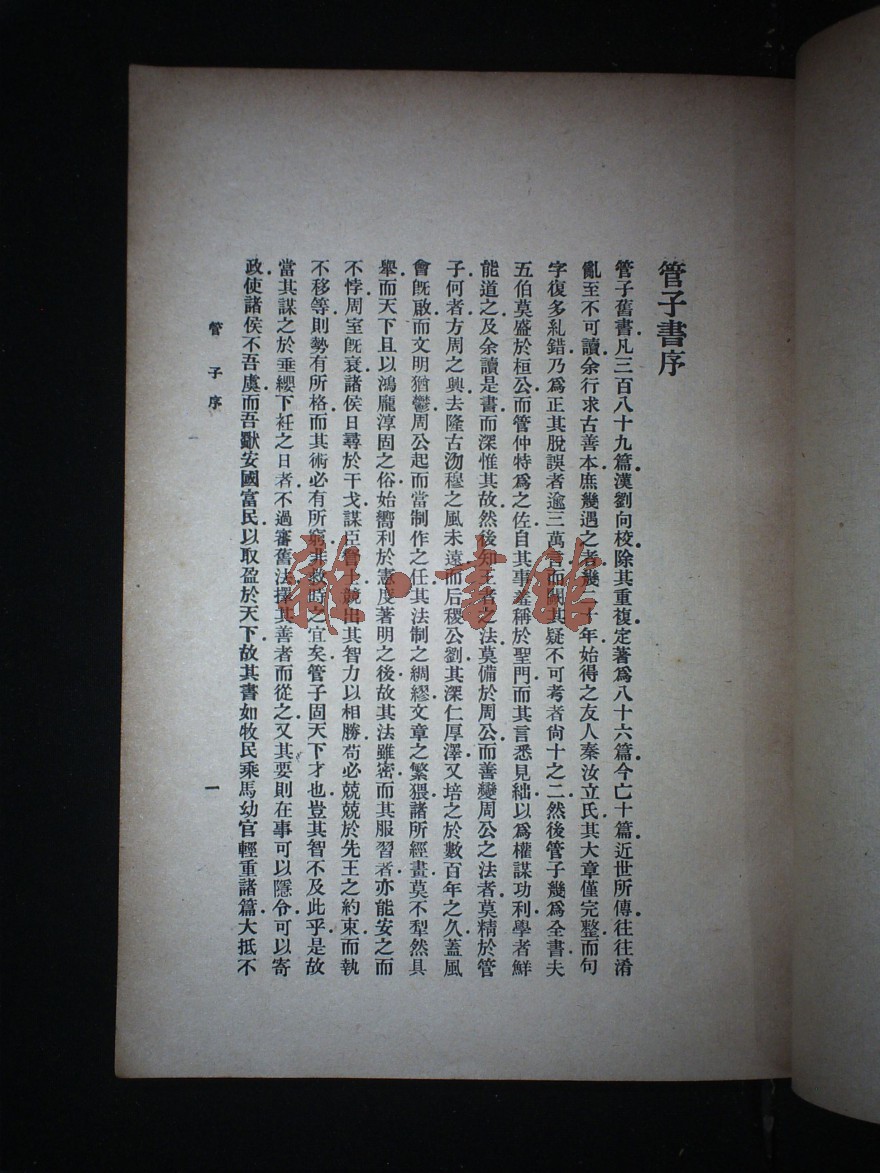 管子書序
管子舊書凡三百八十九篇漢劉向校除其重復定著為八十六篇今亡十篇近世所傳往往淆
亂至不可讀余行求古善本庶幾遇之者幾二十年始得之友人秦汝立氏其大章僅完整而句
字復多糺錯乃為正其脫誤者逾三萬言而闕其疑不可考者尚十之二然後管子幾為全書夫
五伯莫盛於桓公而管仲特為之佐自其事羞稱於聖門而其言悉見絀以為權謀功利學者鮮
能道之及余讀是書而深惟其故然後知王者之法莫備於周公而善變周公之法者莫精於管
子何者方周之興去隆古沕穆之風未遠而后稷公劉其深仁厚澤又培之於數百年之久蓋風
會既啟而文明猶鬱周公起而當制作之任其法制之綢繆文章之繁猥諸所經畫莫不犁然具
舉而天下且以鴻龐淳固之俗始嚮利於憲度著明之後故其法雖密而其服習者亦能安之而
不悖周室既衰諸侯日尋於干戈謀臣智士競出其智力以相勝苟必兢兢於先王之約束而執
不移等則勢有所格而其術必有所窮非救時之宜矣管子固天下才也豈其智不及此乎是故
當其謀之於垂纓下衽之日者不過審舊法擇其善者而從之又其要則在事可以隱令可以寄
政使諸侯不吾虞而吾獸安國富民以取盈於天下故其書如牧民乘馬幼官輕重諸篇大抵不
管子序
一
雜·書館